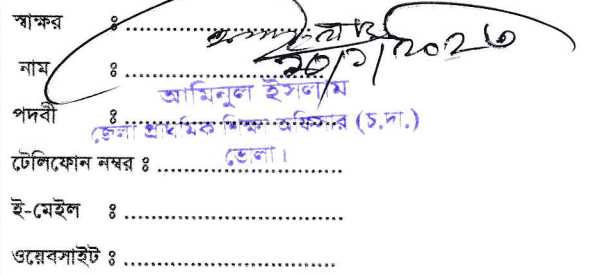 স্বাক্ষর ঃ
২০/১/২০২৩
নাম ঃ
আমিনুল ইসলাম
পদবী ঃ
জেলা প্রাথমিক শিক্ষা অফিসার (চ.দা.)
ভোলা।
টেলিফোন নম্বর ঃ
ই-মেইল ঃ
ওয়েবসাইট ঃ